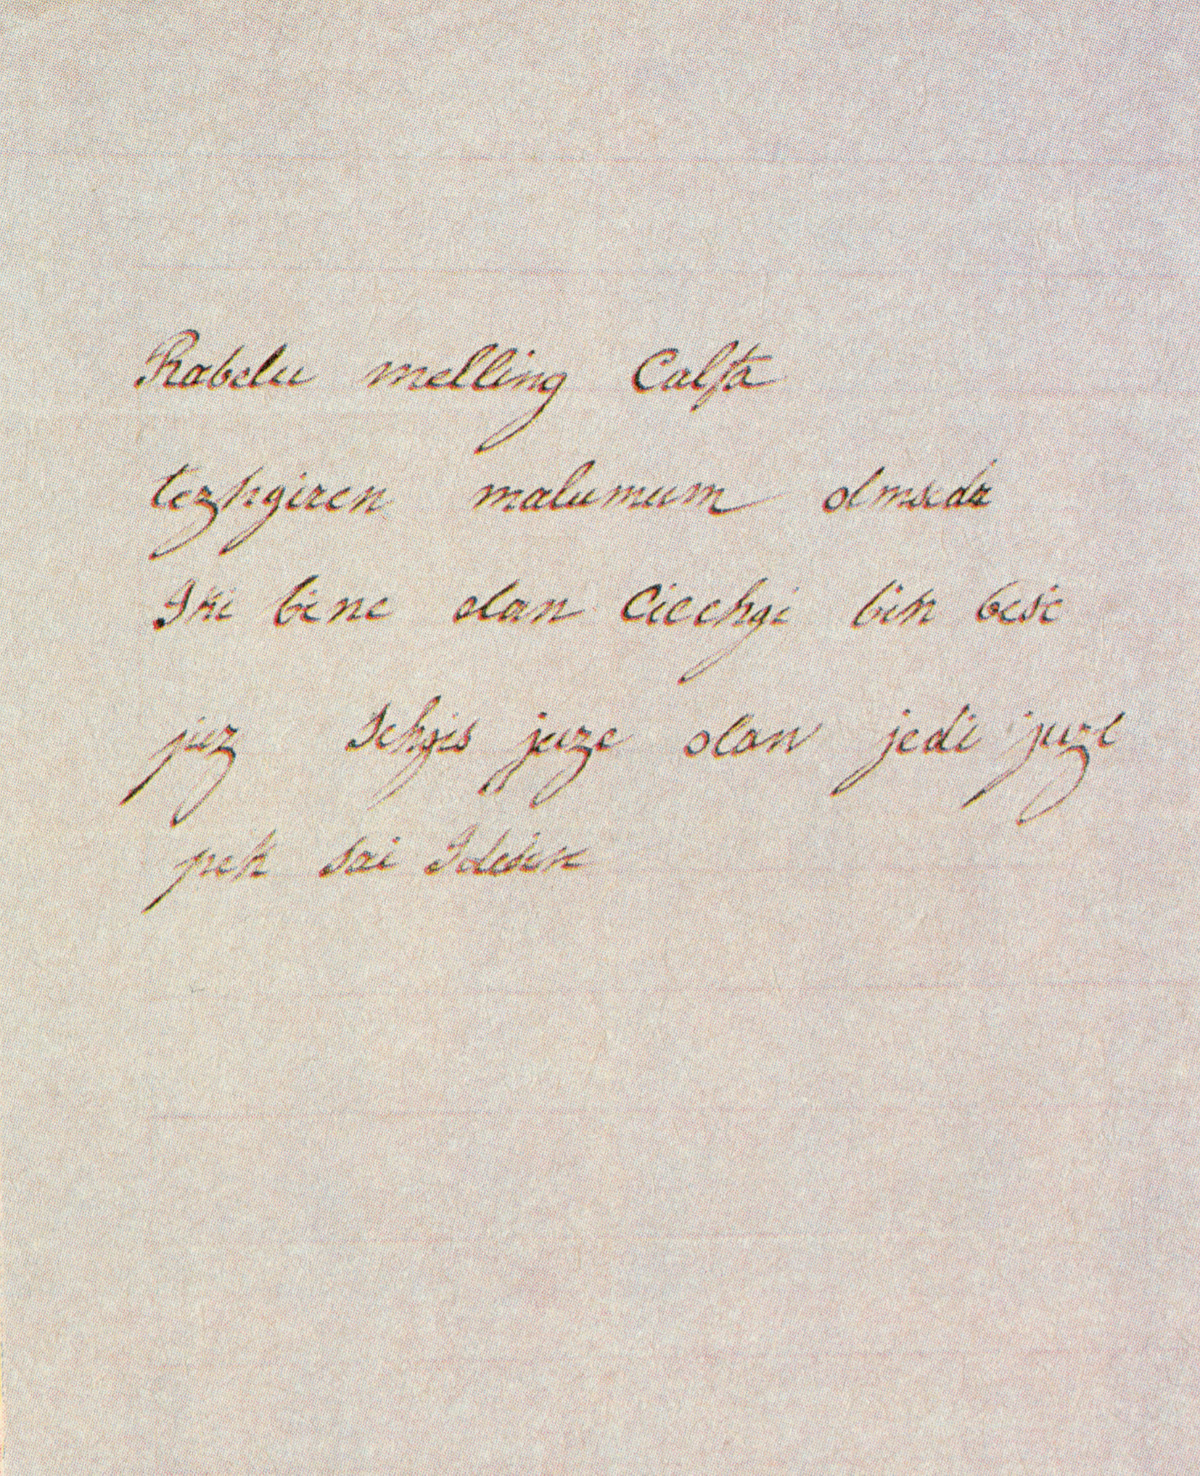 Rabelu melling Calfa
tezhgiren malumum olmsedr
Iki bine olan Ciechgi bin bese
juz Sehgis juze olan jedi juze
pek sai Idesin